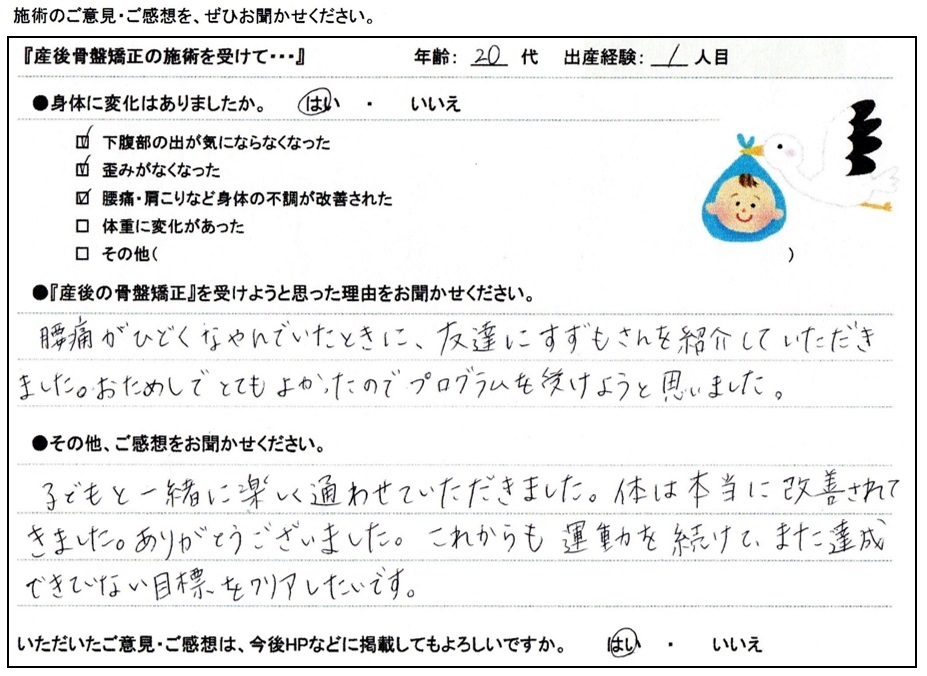 施術のご意見・ご感想を、ぜひお聞かせください。
『産後骨盤矯正の施術を受けて・・・』 年齢: 20 代 出産経験: 1 人目
●身体に変化はありましたか。 はい ・ いいえ
☑ 下腹部の出が気にならなくなった
☑ 歪みがなくなった
☑ 腰痛・肩こりなど身体の不調が改善された
□ 体重に変化があった
□ その他( )
●『産後の骨盤矯正』を受けようと思った理由をお聞かせください。
腰痛がひどくなやんでいたときに、友達にすずもさんを紹介していただき
ました。おためしでとてもよかったのでプログラムを受けようと思いました。
●その他、ご感想をお聞かせください。
子どもと一緒に楽しく通わせていただきました。体は本当に改善されて
きました。ありがとうございました。これからも運動を続けて、まだ達成
できていない目標をクリアしたいです。
いただいたご意見・ご感想は、今後HPなどに掲載してもよろしいですか。 はい ・ いいえ